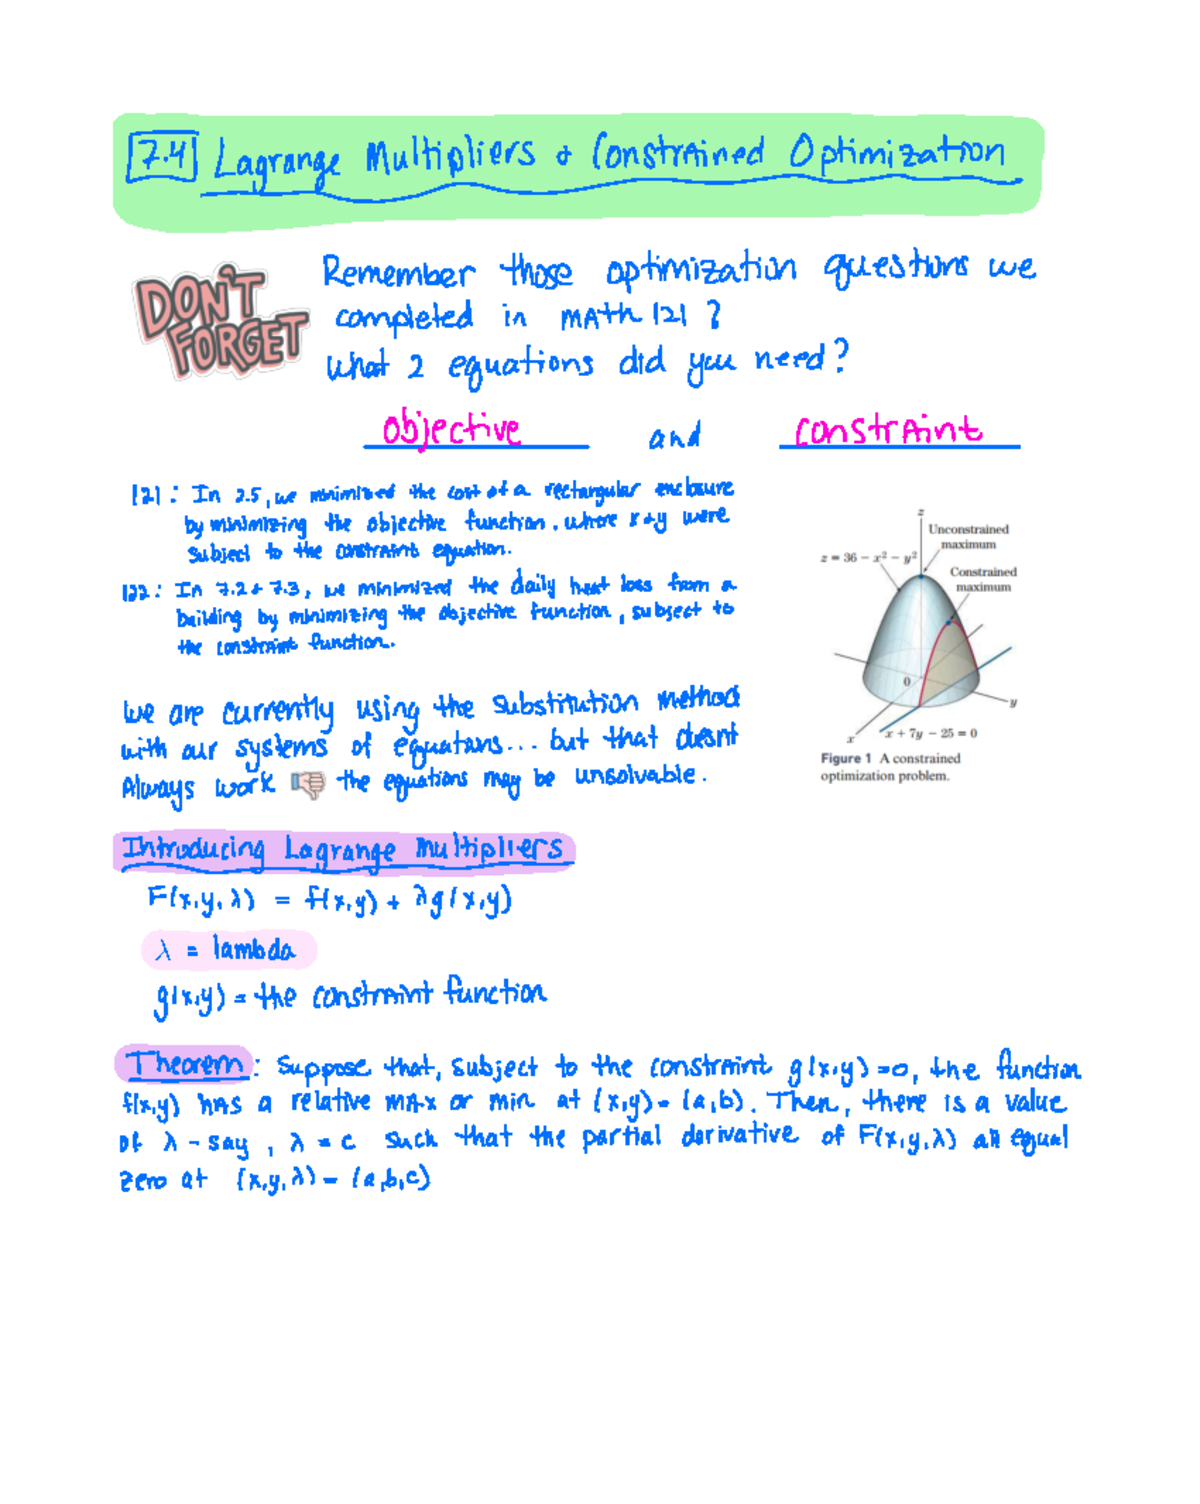 7.4 Lagrange Multipliers & Constrained Optimization
DON'T
FORGET
Remember those optimization questions we
completed in MATH 121 ?
What 2 equations did you need?
objective and constraint
121: In 2.5, we minimized the cost of a rectangular enclosure
by minimizing the objective function, where x & y were
subject to the constraint equation.
122: In 7.2 & 7.3, we minimized the daily heat loss from a
building by minimizing the objective function, subject to
the constraint function.
z
Unconstrained
maximum
z = 36 − x² − y²
Constrained
maximum
0
y
x
x + 7y − 25 = 0
Figure 1 A constrained
optimization problem.
We are currently using the substitution method
with our systems of equations... but that doesnt
Always work the equations may be unsolvable.
Introducing Lagrange Multipliers
F(x,y,λ) = f(x,y) + λg(x,y)
λ = lambda
g(x,y) = the constraint function
Theorem: Suppose that, subject to the constraint g(x,y)=0, the function
f(x,y) has a relative max or min at (x,y) = (a,b). Then, there is a value
of λ - say, λ = c such that the partial derivative of F(x,y,λ) all equal
zero at (x,y,λ) = (a,b,c)